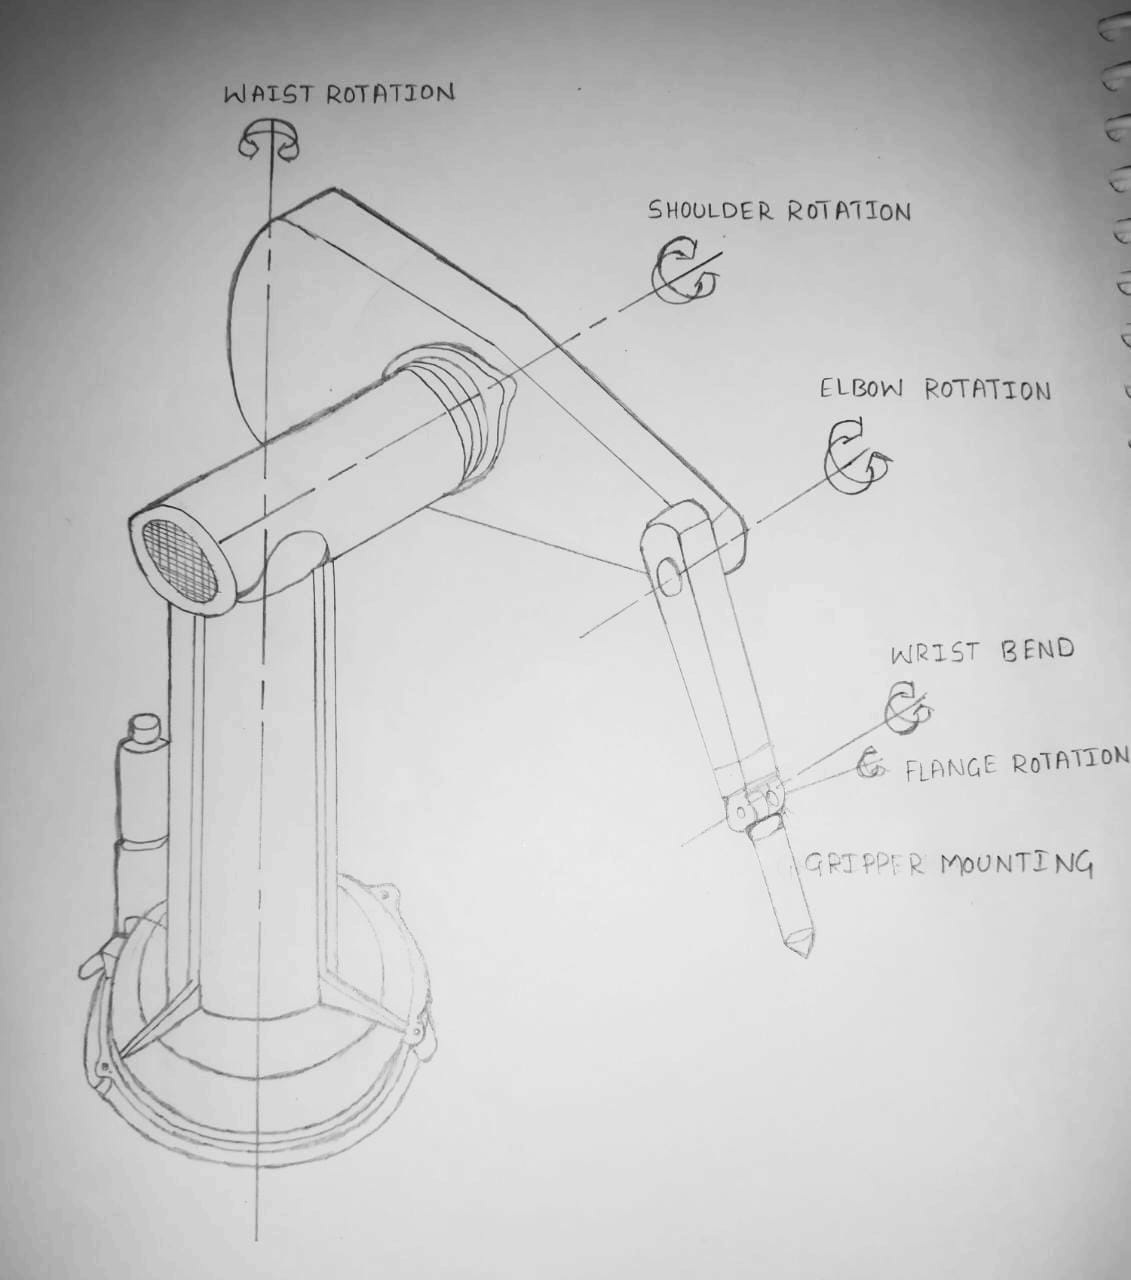 WAIST ROTATION
SHOULDER ROTATION
ELBOW ROTATION
WRIST BEND
FLANGE ROTATION
GRIPPER MOUNTING